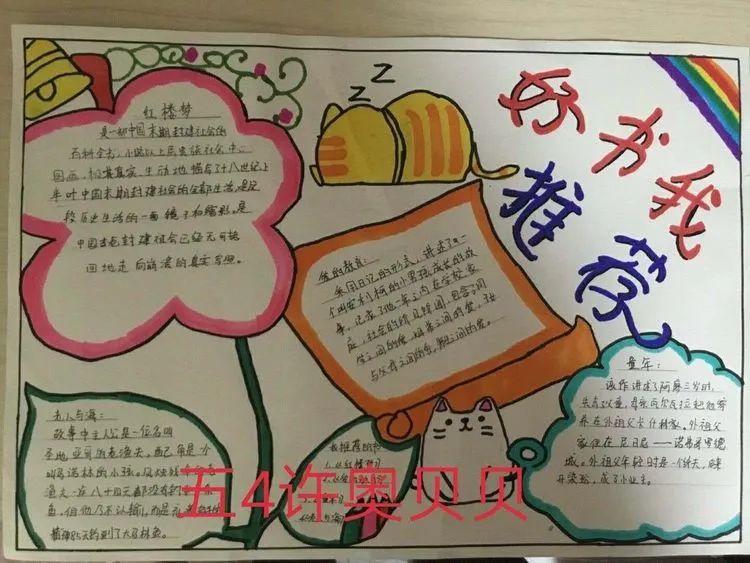 好书我
推荐
红楼梦
是一部中国末期封建社会的
百科全书,小说以上层贵族社会中心
图画,极其真实、生动地描写了十八世纪上
半叶中国末期封建社会的全部生活,是这
段历史生活的一面镜子和缩影,是
中国古老封建社会已经无可挽
回地走向崩溃的真实写照。
爱的教育:
采用日记的形式,讲述了一
个叫安利柯的小男孩成长的故
事,记录了他一年之内在学校、家
庭、社会的所见所闻,包含了同
学之间的爱,姐弟之间的爱,
与父母之间的爱,
童年:
该作讲述了阿廖三岁时,
失去父亲,母亲瓦尔瓦拉把他寄
养在外祖父卡什林家。外祖父
家住在尼日尼——诺弗哥罗德
城。外祖父年轻时是一个纤夫,
成了小业主。
老人与海:
故事中主人公是一位名叫
圣地亚哥的老渔夫,配角是个
叫马诺林的小孩。
渔夫一在八十四天都没有
鱼,但他仍不认输,
终85天钓到了大马林鱼。
我推荐的书
五4许奥贝贝